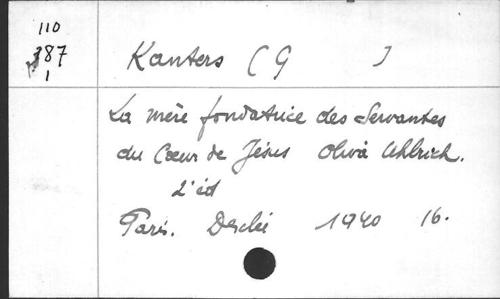 110
387
1
Kanters (G )
La mère fondatrice des Servantes
du Cœur de Jésus Olivia Uhlrich.
2e éd
Paris. Desclée 1940 16.